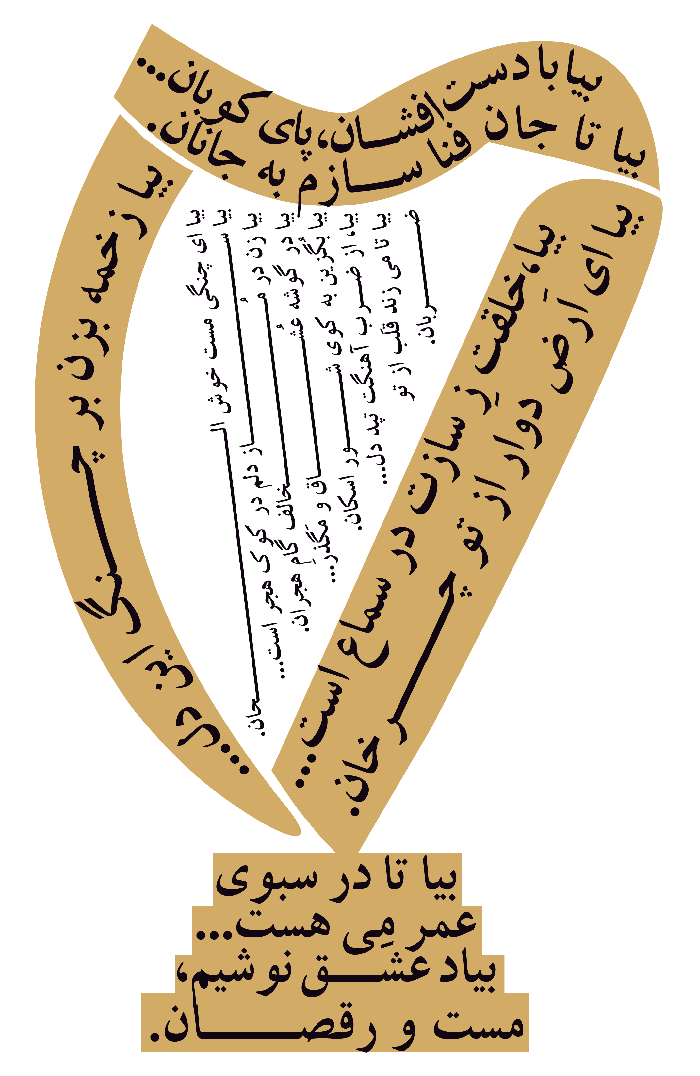 بیا با دست افشان، پای کوبان...
بیا تا جان فنا سازم به جانان.
بیا زخمه بزن بر چـــنگ این دل...
بیا ای چنگی مست خوش الـــحان.
بیا ســـاز دلم در کوک هجر است...
بیا زن در مُـــخالف گامِ هجران.
بیا در گوشه عُشـــاق و مگذر...
بیا بگزین به کوی شـــور اسکان.
بیا، از ضـرب آهنگت تپد دل...
بیا تا می زند قلب از تو
ضـــربان.
بیا، خلقت زِ سازت در سماع است...
بیا ای اَرض دوار از تو چـــرخان.
بیا تا در سبوی
عمر مِی هست...
بیاد عشـــق نوشیم،
مست و رقصـــان.